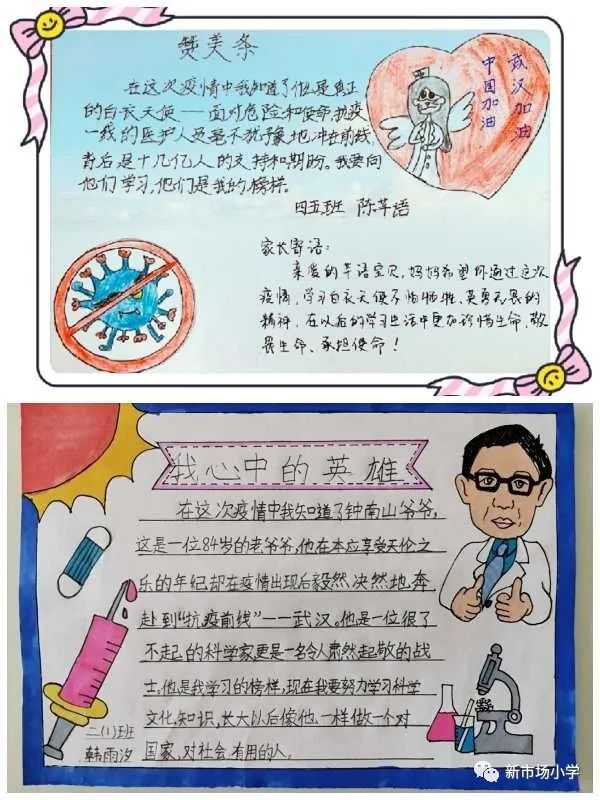 赞美条
武汉加油
中国加油
在这次疫情中我知道了他是真正
的白衣天使——面对危险和使命,抗疫
一线的医护人员毫不犹豫地冲在前线,
背后是十几亿人的支持和期盼。我要向
他们学习,他们是我的榜样。
四五班 陈芊语
家长寄语:
亲爱的芊语宝贝,妈妈希望你通过这次
疫情,学习白衣天使不怕牺牲、英勇无畏的
精神,在以后的学习生活中更加珍惜生命、敬
畏生命、承担使命!
我心中的英雄
在这次疫情中我知道了钟南山爷爷,
这是一位84岁的老爷爷,他在本应享受天伦之
乐的年纪却在疫情出现后毅然决然地奔
赴到“抗疫前线”——武汉。他是一位很了
不起的科学家更是一名令人肃然起敬的战
士。他是我学习的榜样,现在我要努力学习科学
文化知识,长大以后像他一样做一个对
国家,对社会有用的人。
二(1)班
韩雨汐
新市场小学